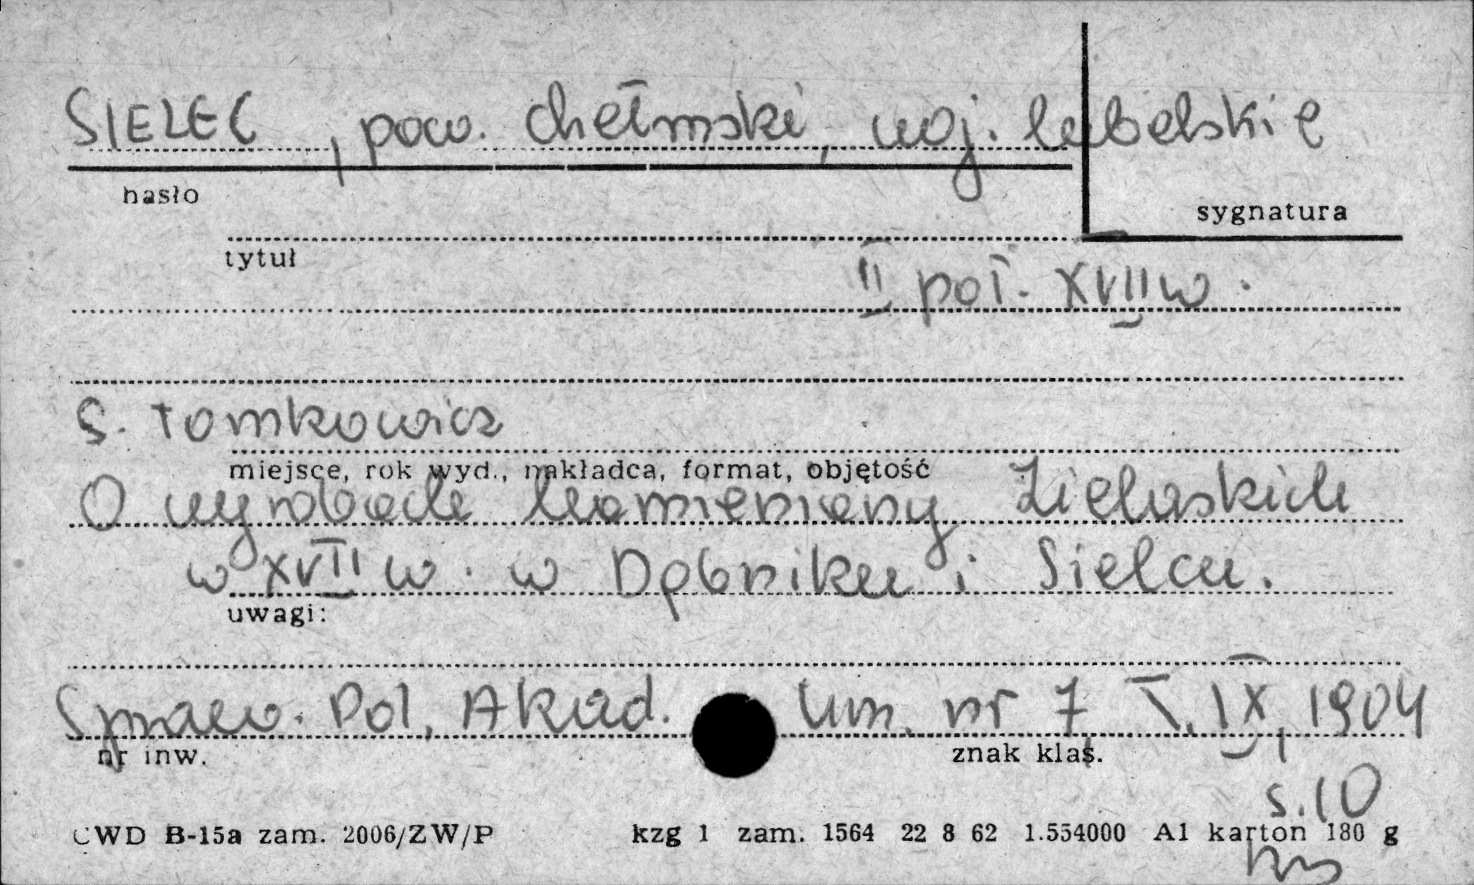 SIELEC, pow. chełmski, woj. lubelskie
hasło
sygnatura
tytuł
II poł. XVII w.
S. Tomkowicz
miejsce, rok wyd., nakładca, format, objętość
O wyrobach kamieniarzy Zielaskich
w XVII w. w Dębniku i Sielcu.
uwagi:
Spraw. Pol. Akad. Um. nr 7 T. IX, 1904
nr inw.
znak klas.
s. 10
CWD B-15a zam. 2006/ZW/P kzg 1 zam. 1564 22 8 62 1.554000 A1 karton 180 g